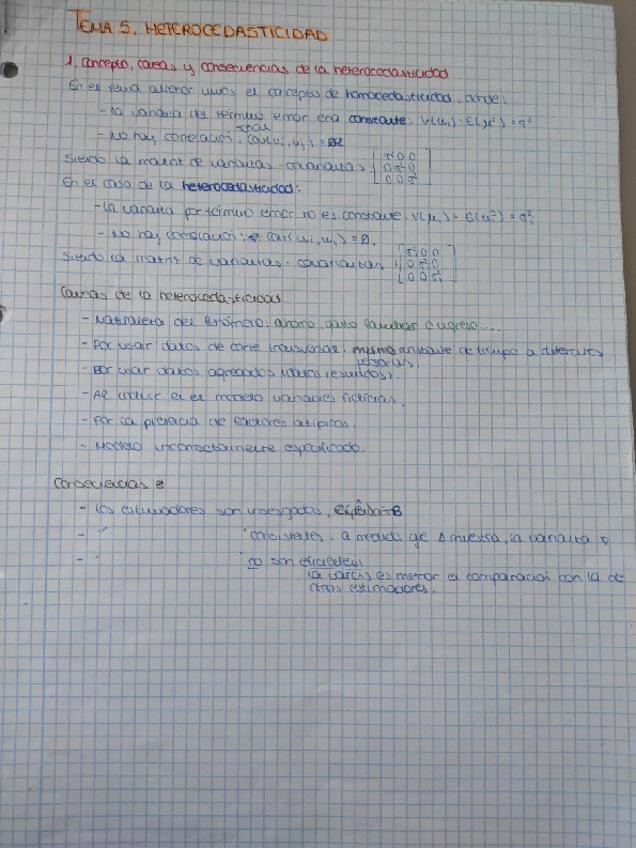 TEMA 5. HETEROCEDASTICIDAD
1. Concepto, causas y consecuencias de la heterocedasticidad
En el tema anterior vimos el concepto de homocedasticidad, donde:
- La varianza del término error era constante: V(ui) = E(ui²) = σ²
- No hay correlación: Cov(ui, uj) = 0
Siendo la matriz de varianzas-covarianzas:
En el caso de la heterocedasticidad:
- La varianza término error no es constante, V(μi) = E(ui²) = σ²i
- No hay correlación: Cov(ui, uj) = 0.
Siendo la matriz de varianzas-covarianzas
Causas de la heterocedasticidad
- Naturaleza del fenómeno: ahorro, gasto familias o ingreso....
- Por usar datos de corte transversal: mismo instante de tiempo a diferentes
- Por usar datos agregados
- Al incluir en el modelo variables ficticias.
- Por la presencia de factores atípicos.
- Modelo incorrectamente especificado.
Consecuencias
- Los estimadores son insesgados,
- " " consistentes: a medida que Δ muestra, la varianza
- " " no son eficientes:
es menor en comparación con la de
otros estimadores.